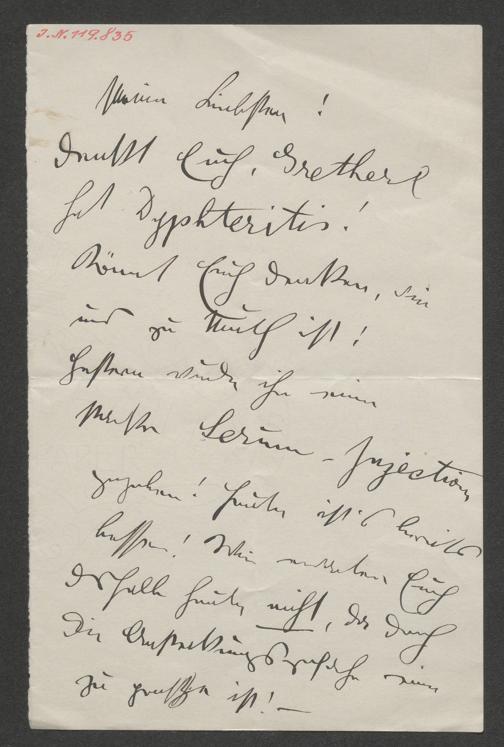 I.N. 119.835
Meine Liebsten!
Denkt Euch, Gretherl
hat Dyphteritis!
Könnt Euch denken, wie
uns zu Muth ist!
Gestern wurde ihr eine
starke Serum-Injection
gegeben! Heute ist's bereits
besser! Wir erwarten Euch
deshalb heute nicht, da doch
die Ansteckungsgefahr eine
zu große ist! —